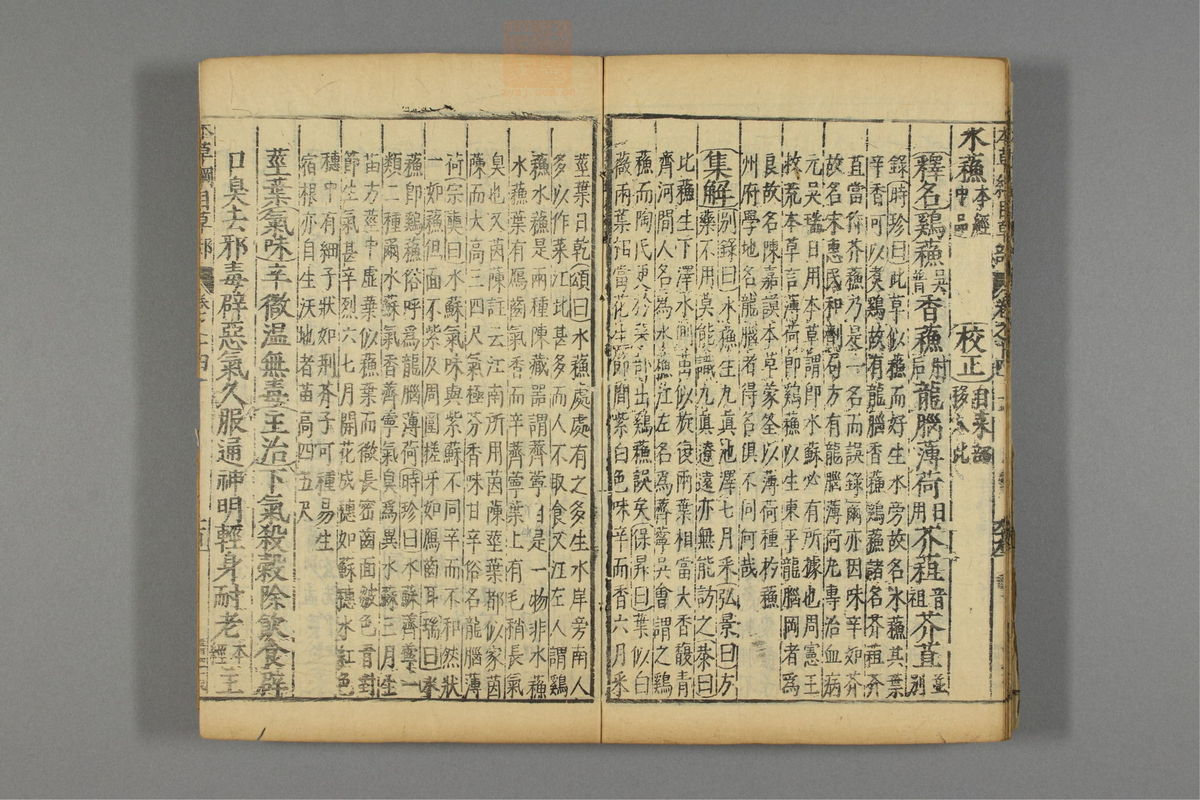 本草綱目草部
水蘓本經中品 校正自菜部移入此
釋名鷄蘓吳普香蘓同龍腦薄荷日用芥葅音祖芥苴並別
錄時珍曰此草似蘓而好生水旁故名水蘓其葉
辛香可以煑鷄故有龍腦香蘓鷄蘓諸名芥葅芥
苴當作芥蘓乃是一名而誤錄爾亦因味辛如芥
故名宋惠民和劑局方有龍腦薄荷丸專治血病
元吳瑞日用本草謂即水蘇必有所據也周憲王
救荒本草言薄荷即鷄蘓以生東平龍腦岡者爲
良故名陳嘉謨本草蒙筌以薄荷種於蘓
州府學地名龍腦者得名俱不同何哉
集解別錄曰水蘓生九真池澤七月采弘景曰方
藥不用莫能識九真遼遠亦無能訪之恭曰
此蘓生下澤水側苗似旋復兩葉相當大香馥青
齊河間人名爲水蘓江左名爲薺薴吳會謂之鷄
蘓而陶氏更於菜部出鷄蘓誤矣保昇曰葉似白
薇兩葉相當花生節間紫白色味辛而香六月采
莖葉日乾頌曰水蘓處處有之多生水岸旁南人
多以作菜江北甚多而人不取食又江左人謂鷄
蘓水蘓是兩種陳藏器謂薺薴自是一物非水蘓
水蘓葉有鴈齒氣香而辛薺薴葉上有毛稍長氣
臭也又茵陳註云江南所用茵陳莖葉都似家茵
陳而大高三四尺氣極芬香味甘辛俗名龍腦薄
荷宗奭曰水蘇氣味與紫蘇不同辛而不和然狀
一如蘓但面不紫及周圍槎牙如鴈齒耳瑞曰水
蘓即鷄蘓俗呼爲龍腦薄荷時珍曰水蘇薺薴一
類二種爾水蘇氣香薺薴氣臭爲異水蘇三月生
苗方莖中虛葉似蘓葉而微長密齒面皺色青對
節生氣甚辛烈六七月開花成穗如蘇穗水紅色
穗中有細子狀如荆芥子可種易生
宿根亦自生沃地者苗高四五尺
莖葉氣味辛微温無毒主治下氣殺榖除飲食辟
口臭去邪毒辟惡氣久服通神明輕身耐老本經主
本草綱目草部